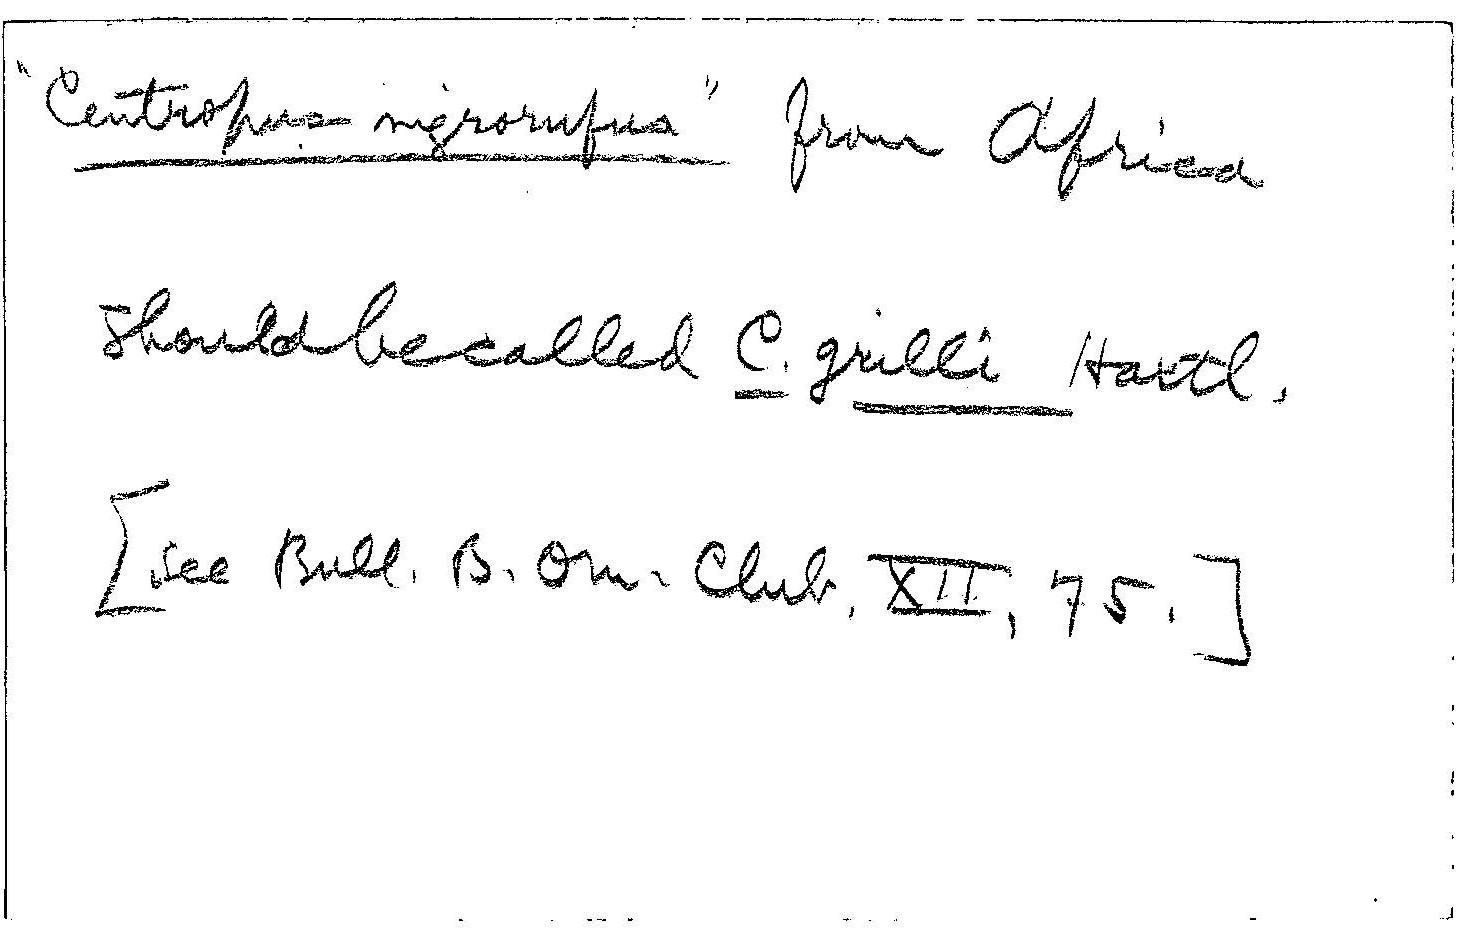 "Centropus nigrorufus" from Africa
should be called C. grilli Hartl.
[see Bull. B. Orn. Club, XII, 75.]